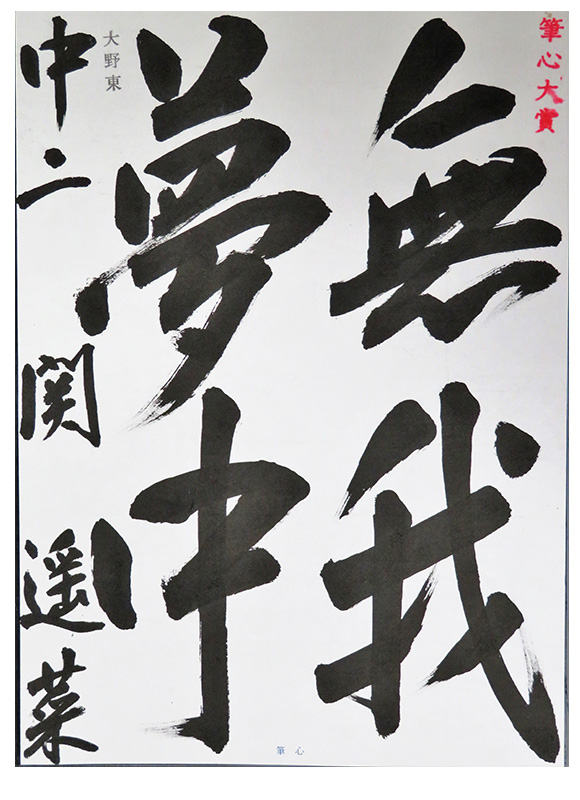 筆心大賞
無我
夢中
大野東
中二 関 遥菜
筆心